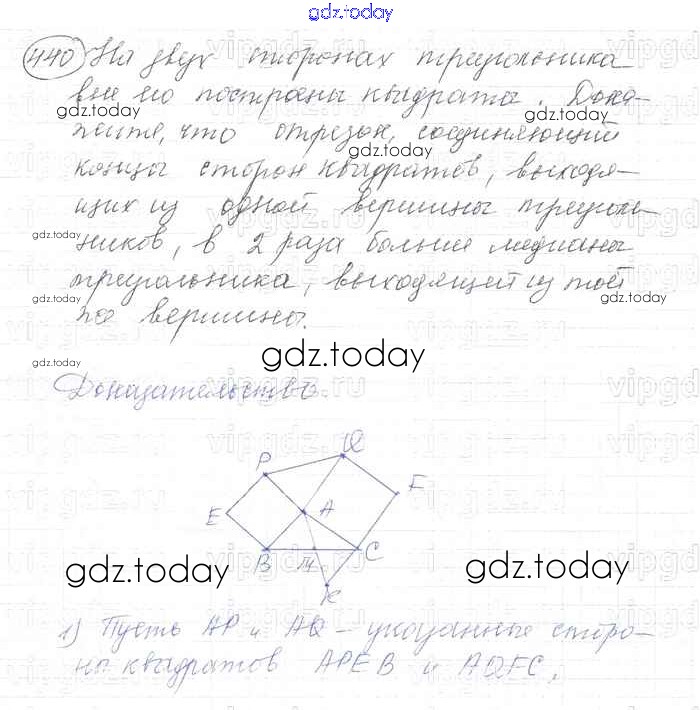 gdz.today
440 На двух сторонах треугольника
вне его построены квадраты. Дока-
gdz.today
жите, что отрезок, соединяющий
gdz.today
концы сторон квадратов, выходя-
щих из одной вершины треуголь-
gdz.today
ников, в 2 раза больше медианы
треугольника, выходящей из той
gdz.today gdz.today
же вершины.
gdz.today
gdz.today
Доказательство.
P Q
F
E A
B M C
K
gdz.today gdz.today
1) Пусть AP и AQ – указанные сторо-
ны квадратов APEB и AQFC.